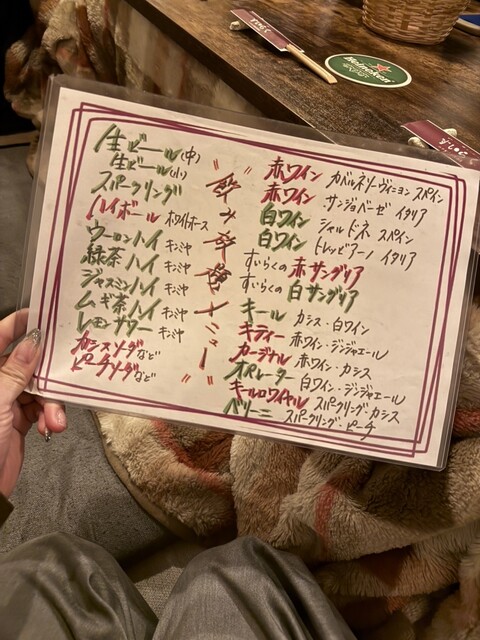 生ビール(中)
生ビール(小)
スパークリング
ハイボール ホワイトホース
ウーロンハイ キンミヤ
緑茶ハイ キンミヤ
ジャスミンハイ キンミヤ
ムギ茶ハイ キンミヤ
レモンサワー キンミヤ
カシスソーダなど
ピーチソーダなど
"飲み放題メニュー"
赤ワイン カベルネソーヴィニヨン スペイン
赤ワイン サンジョベーゼ イタリア
白ワイン シャルドネ スペイン
白ワイン トレッビアーノ イタリア
すいらくの赤サングリア
すいらくの白サングリア
キール カシス・白ワイン
キティー 赤ワイン・ジンジャエール
カージナル 赤ワイン・カシス
オペレーター 白ワイン・ジンジャエール
キールロワイヤル スパークリング・カシス
ベリーニ スパークリング・ピーチ
Heineken